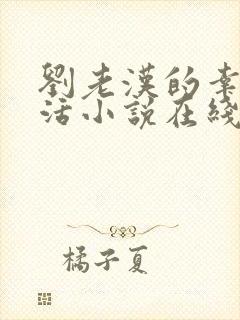 劉老漢的幸
活小說在綫
橘子夏